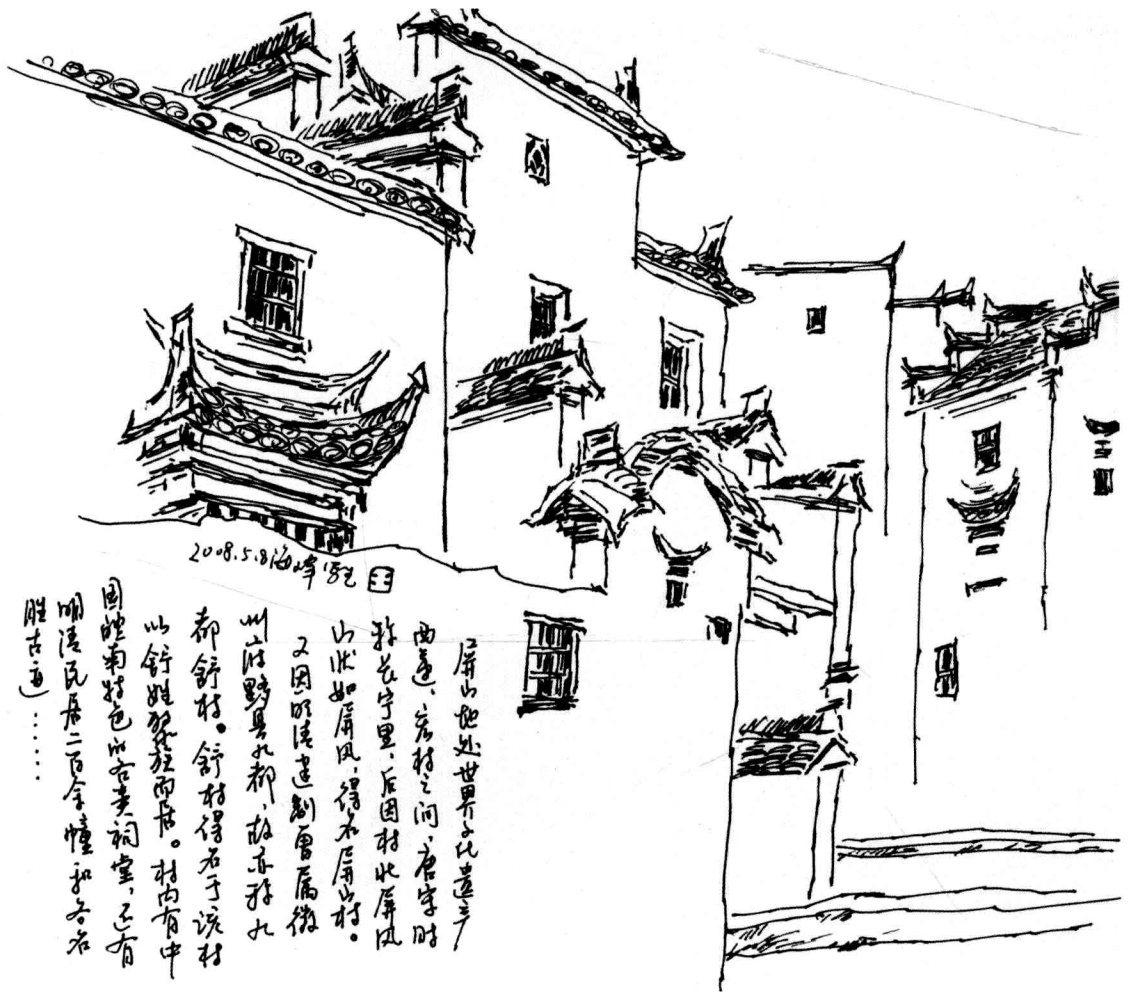 2008.5.8海峰写生
屏山地处世界文化遗产
西递、宏村之间,唐宋时
称长宁里,后因村北屏风
山状如屏风,得名屏山村。
又因明清建制曾属徽
州府黟县九都,故亦称九
都舒村。舒村得名于该村
以舒姓聚族而居。村内有中
国皖南特色的各类祠堂,还有
明清民居二百余幢和各名
胜古迹……